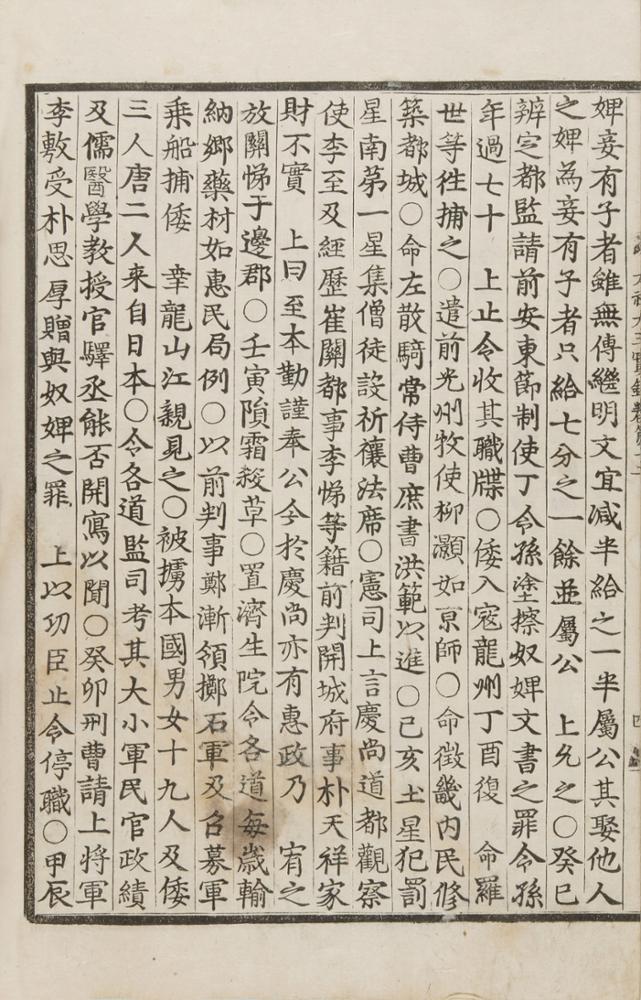 婢妾有子者雖無傳繼明文宜減半給之一半屬公其娶他人
之婢為妾有子者只給七分之一餘並屬公 上允之○癸巳
辨定都監請前安東節制使丁令孫塗擦奴婢文書之罪令孫
年過七十 上止令收其職牒○倭入寇龍州丁酉復 命羅
世等徃捕之○遣前光州牧使柳灝如京師○命徵畿內民修
築都城○命左散騎常侍曹庶書洪範以進○己亥土星犯罰
星南第一星集僧徒設祈禳法席○憲司上言慶尚道都觀察
使李至及經歷崔關都事李悌等籍前判開城府事朴天祥家
財不實 上曰至本勤謹奉公今於慶尚亦有惠政乃 宥之
放關悌于邊郡○壬寅隕霜殺草○置濟生院令各道每歲輸
納鄉藥材如惠民局例○以前判事鄭漸領擲石軍及召募軍
乘船捕倭 幸龍山江親見之○被擄本國男女十九人及倭
三人唐二人来自日本○令各道監司考其大小軍民官政績
及儒醫學教授官驛丞能否開寫以聞○癸卯刑曹請上將軍
李敷受朴思厚贈與奴婢之罪 上以功臣止令停職○甲辰